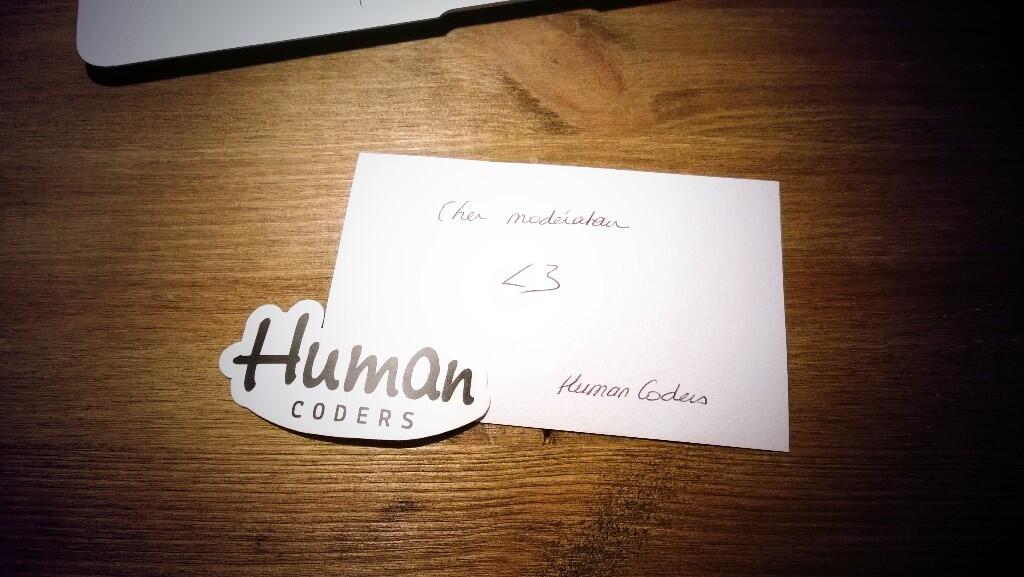 Cher modérateur
<3
Human Coders
Human
CODERS